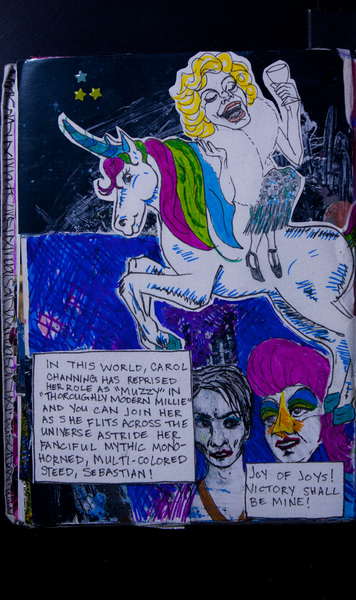 IN THIS WORLD, CAROL
CHANNING HAS REPRISED
HER ROLE AS "MUZZY" IN
"THOROUGHLY MODERN MILLIE"
AND YOU CAN JOIN HER
AS SHE FLITS ACROSS THE
UNIVERSE ASTRIDE HER
FANCIFUL MYTHIC MONO-
HORNED, MULTI-COLORED
STEED, SEBASTIAN!
JOY OF JOYS!
VICTORY SHALL
BE MINE!